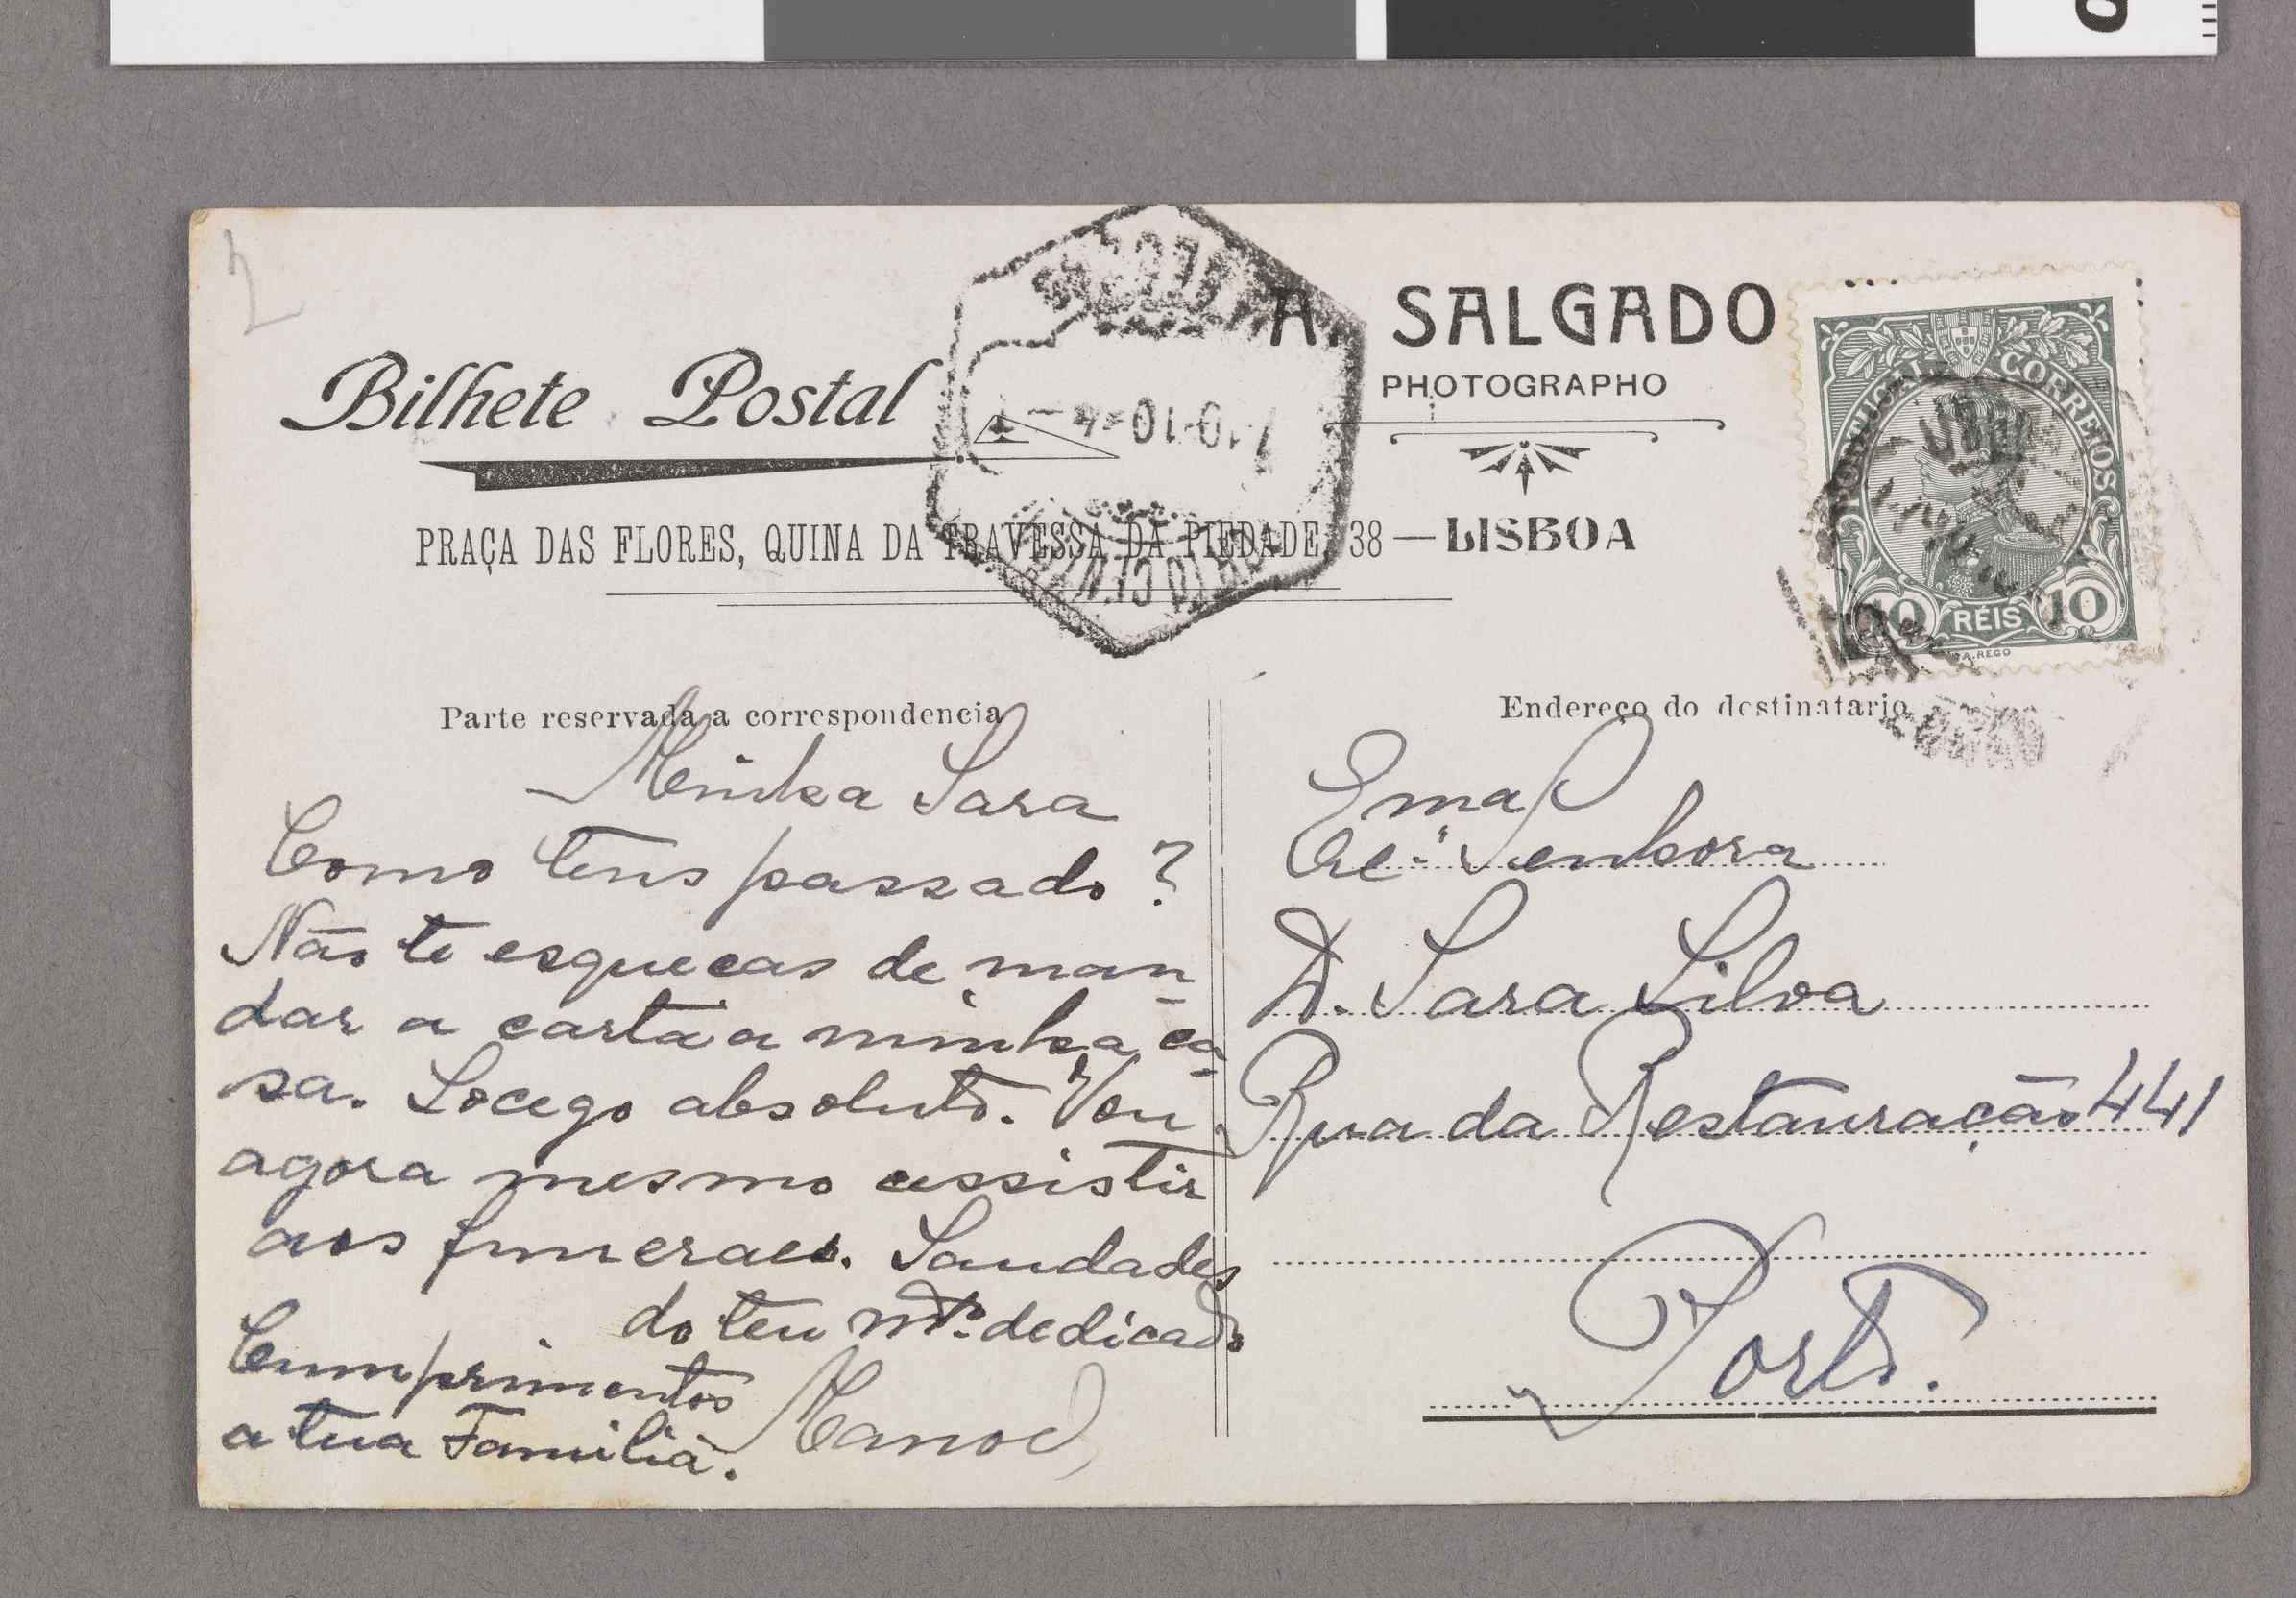 2
A. SALGADO
PHOTOGRAPHO
Bilhete Postal
PRAÇA DAS FLORES, QUINA DA TRAVESSA DA PIEDADE, 38 — LISBOA
PORTUGAL CORREIOS
10 RÉIS 10
Parte reservada a correspondencia
Minha Sara
Como tens passado?
Não te esquecas de man-
dar a carta a minha ca-
sa. Socego absoluto. Vou
agora mesmo assistir
aos funeraes. Saudades
do teu mto. dedicado
Manoel
Cumprimentos
a tua Familia.
Endereço do destinatario
Ema
Senhora
D. Sara Silva
Rua da Restauração 441
Porto.